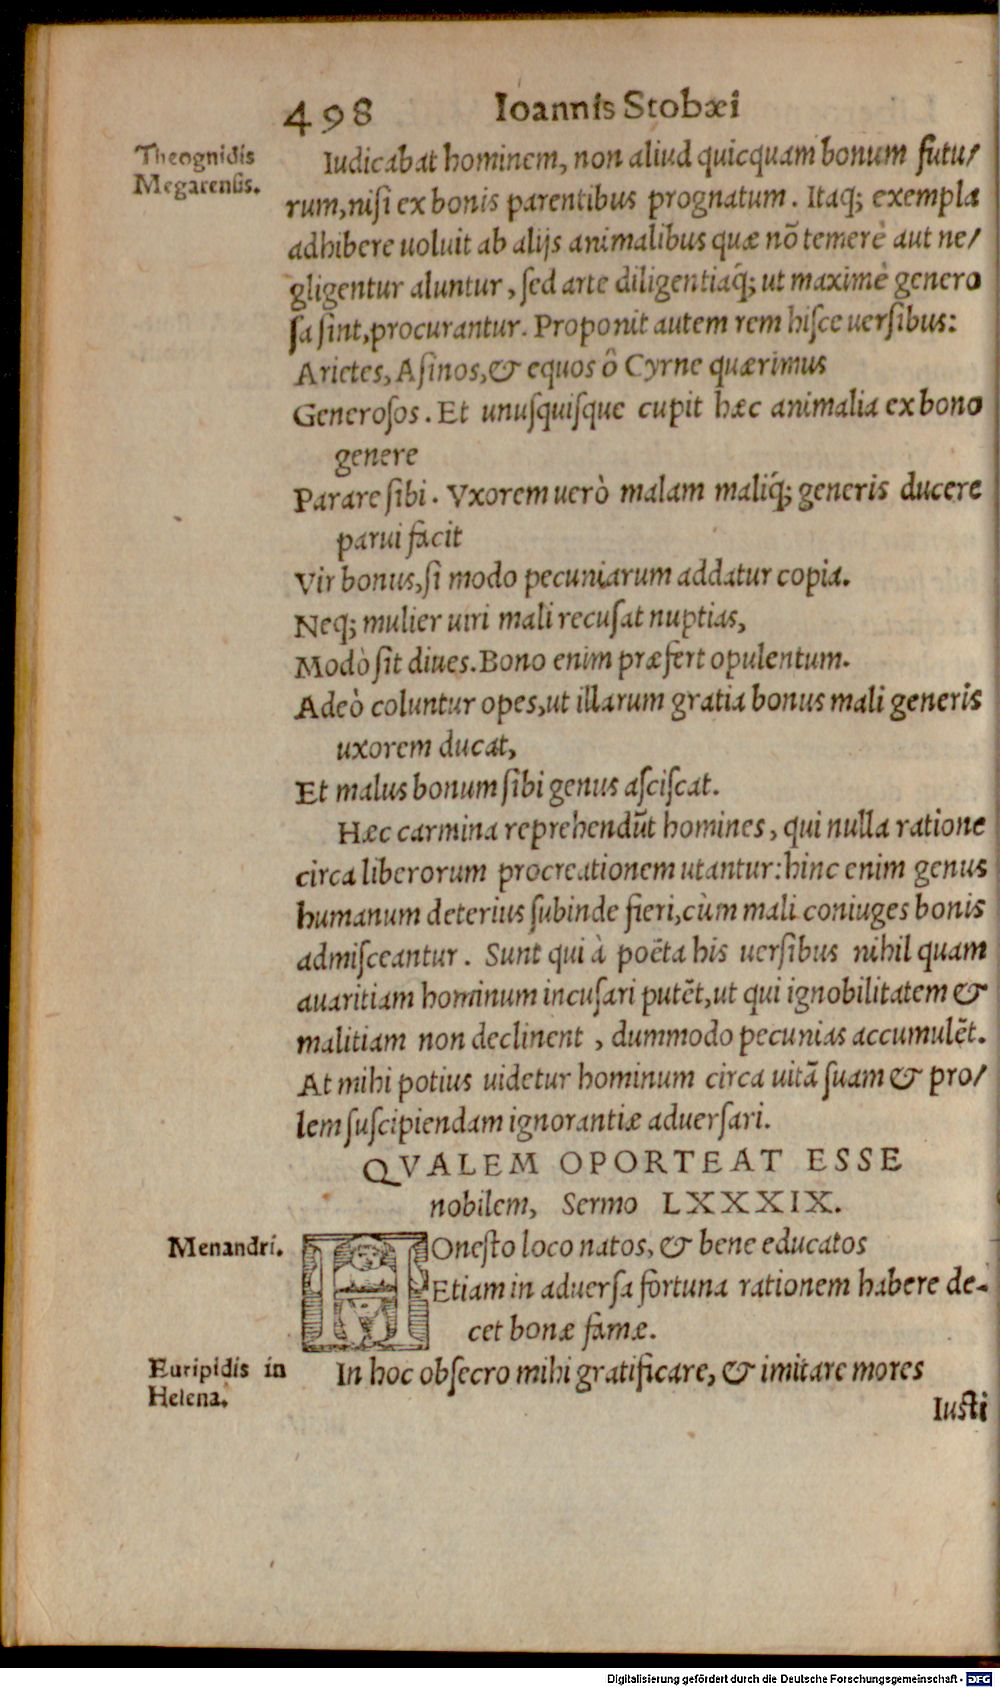 498 Ioannis Stobæi
Theognidis
Megarensis.
Iudicabat hominem, non aliud quicquam bonum futu/
rum, nisi ex bonis parentibus prognatum. Itaq; exempla
adhibere uoluit ab alijs animalibus quæ nō temerè aut ne/
gligentur aluntur, sed arte diligentiaq́; ut maximè genero
sa sint, procurantur. Proponit autem rem hisce uersibus:
Arietes, Asinos, & equos ô Cyrne quærimus
Generosos. Et unusquisque cupit hæc animalia ex bono
genere
Parare sibi. Vxorem uerò malam maliq́; generis ducere
parui facit
Vir bonus, si modo pecuniarum addatur copia.
Neq; mulier uiri mali recusat nuptias,
Modò sit diues. Bono enim præfert opulentum.
Adeò coluntur opes, ut illarum gratia bonus mali generis
uxorem ducat,
Et malus bonum sibi genus asciscat.
Hæc carmina reprehendūt homines, qui nulla ratione
circa liberorum procreationem utantur: hinc enim genus
humanum deterius subinde fieri, cùm mali coniuges bonis
admisceantur. Sunt qui à poëta his uersibus nihil quam
auaritiam hominum incusari putēt, ut qui ignobilitatem &
malitiam non declinent, dummodo pecunias accumulēt.
At mihi potius uidetur hominum circa uitā suam & pro/
lem suscipiendam ignorantiæ aduersari.
QVALEM OPORTEAT ESSE
nobilem, Sermo LXXXIX.
Menandri.
HOnesto loco natos, & bene educatos
Etiam in aduersa fortuna rationem habere de-
cet bonæ famæ.
Euripidis in
Helena.
In hoc obsecro mihi gratificare, & imitare mores
Iusti
Digitalisierung gefördert durch die Deutsche Forschungsgemeinschaft - DFG